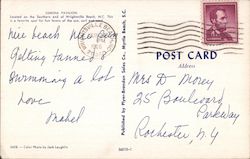 LUMINA PAVILION
Located on the Southern end of Wrightsville Beach, N.C. This
is a favorite spot for fun lovers of the sun, surf and sand.
Nice beach Nice
Getting Tanned
Swimming a lot
Love
Mabel
Color Photo by Jack Loughlin
Published by Plyer-Brandon Sales Co., Myrtle Beach, S.C.
POST CARD
Address
Mrs D Morey
25 Boulevard
Parkway
Rochester, N.Y